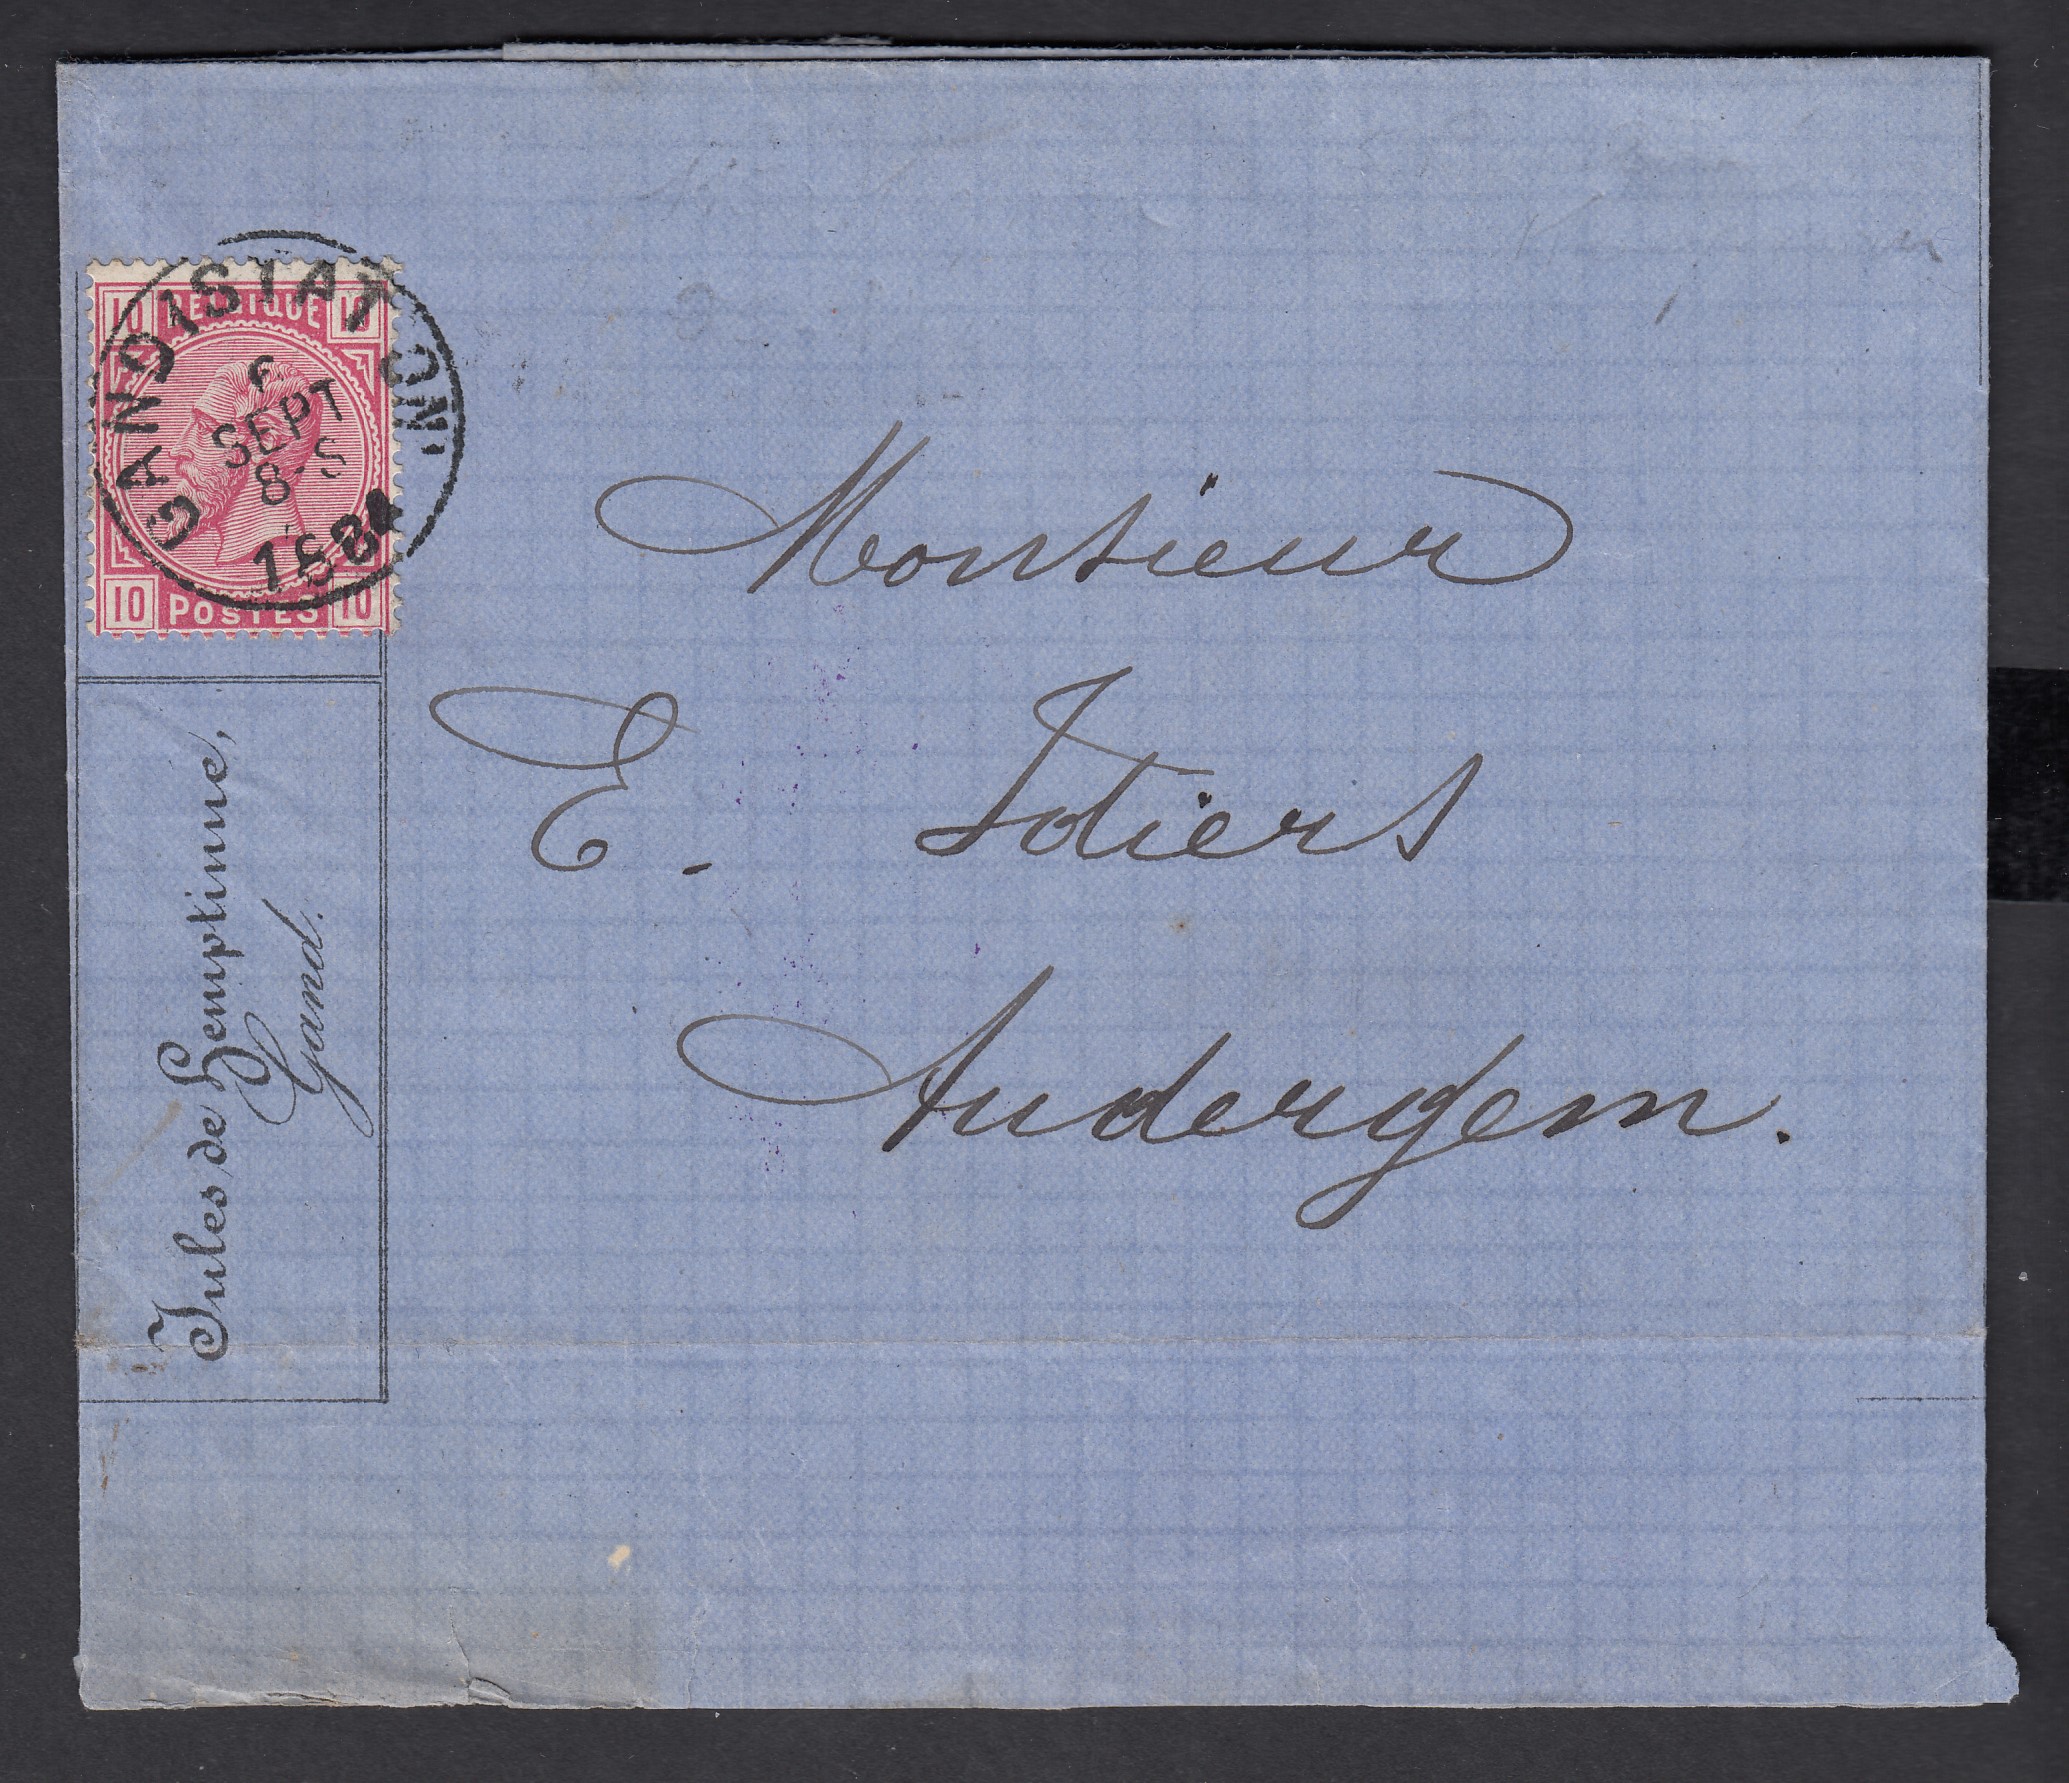 10 BELGIQUE 10
GAND (STATION)
6
SEPT
8-S
1884
10 POSTES 10
Jules de Hemptinne,
Gand.
Monsieur
E. Idiers
Audergem.